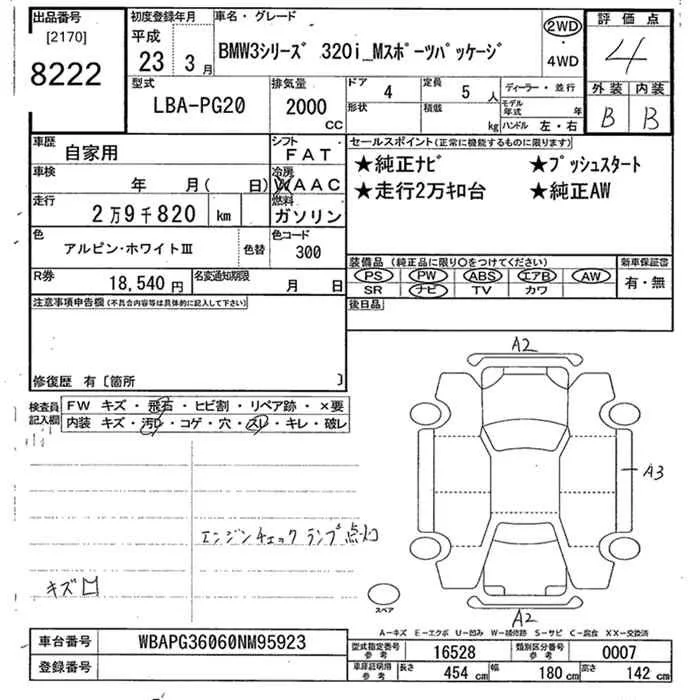 出品番号 [2170] 8222
初度登録年月 平成 23 3月
車名・グレード
BMW3シリーズ 320i_Mスポーツパッケージ
2WD・4WD
評価点 4
外装 内装
B B
型式 LBA-PG20
排気量 2000 CC
ドア 4
定員 5 人
形状
積載 kg
ディーラー・並行
モデル年式 年
ハンドル 左・右
車歴 自家用
シフト FAT
車検 年 月( 日)
冷房 WAAC
走行 2万9千820 km
燃料 ガソリン
色 アルピン・ホワイトIII 色替
色コード 300
R券 18,540円
名変通知期限 月 日
セールスポイント(正常に機能するものに限ります)
★純正ナビ ★プッシュスタート
★走行2万キロ台 ★純正AW
装備品(純正品に限り○をつけてください)
PS PW ABS エアB AW
SR ナビ TV カワ
新車保証書
有・無
後日品
注意事項申告欄(不具合内容等は具体的に記入して下さい)
修復歴 有〔箇所 〕
検査員記入欄
FW キズ・飛石・ヒビ割・リペア跡・×要
内装 キズ・汚レ・コゲ・穴・スレ・キレ・破レ
エンジンチェックランプ点灯
キズ
A2
A3
A2
スペア
A-キズ E-エクボ U-凹み W-補修跡 S-サビ C-腐食 XX-交換済
車台番号 WBAPG36060NM95923
登録番号
型式指定番号 参考 16528
類別区分番号 参考 0007
車庫証明用 参考 長さ 454 cm 幅 180 cm 高さ 142 cm